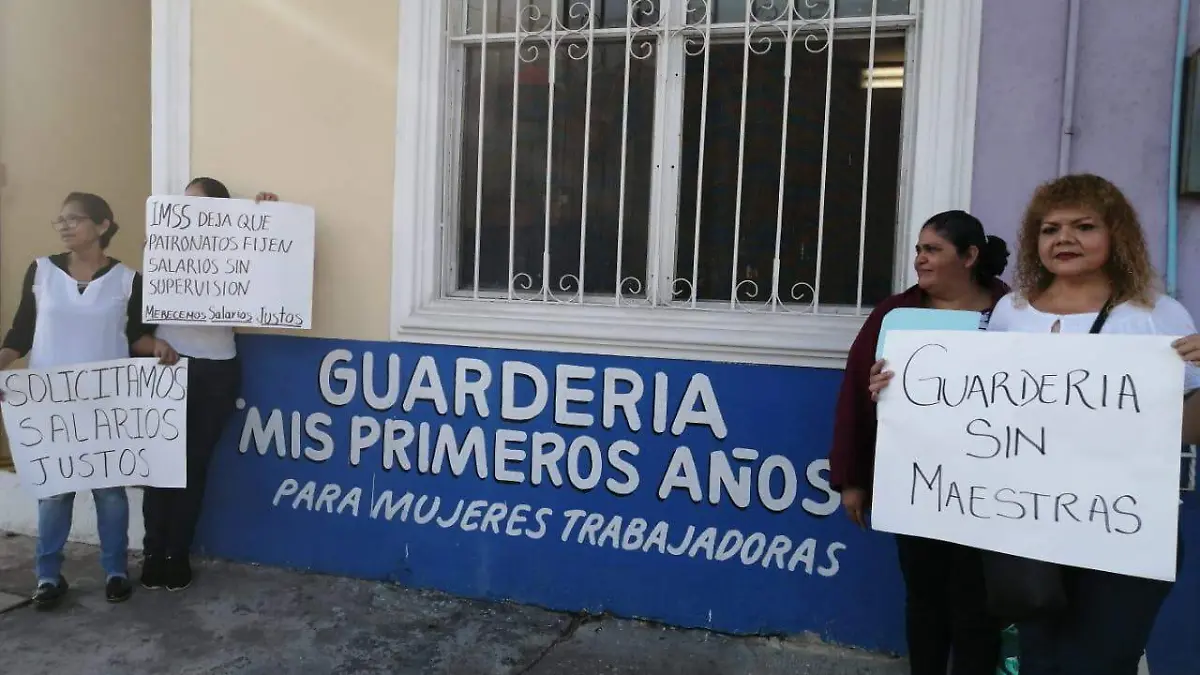 IMSS DEJA QUE
PATRONATOS FIJEN
SALARIOS SIN
SUPERVISION
MERECEMOS SALARIOS JUSTOS
SOLICITAMOS
SALARIOS
JUSTOS
GUARDERIA
"MIS PRIMEROS AÑOS
PARA MUJERES TRABAJADORAS
GUARDERIA
SIN
MAESTRAS